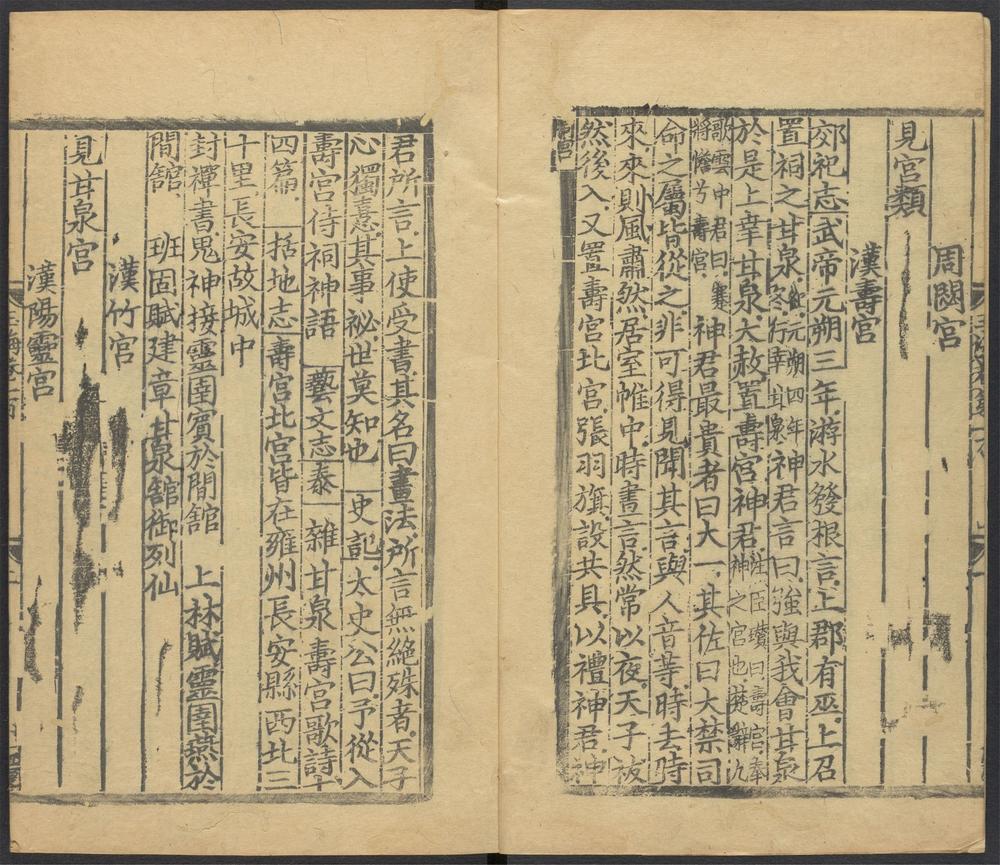 周閟宮
見宮類
漢壽宮
郊祀志武帝元朔三年游水發根言上郡有巫上召
置祠之甘泉元朔四年冬行幸甘泉神君言曰強與我會甘泉
於是上幸甘泉大赦置壽宮神君注臣瓚曰壽宮奉神之宮也楚辭九
歌雲中君曰蹇將憺兮壽宮神君最貴者曰大一其佐曰大禁司
命之屬皆從之非可得見聞其言與人音等時去時
來來則風肅然居室帷中時晝言然常以夜天子祓
然後入又置壽宮北宮張羽旗設共具以禮神君神
君所言上使受書其名曰畫法所言無絕殊者天子
心獨憙其事祕世莫知也 史記太史公曰予從入
壽宮侍祠神語 藝文志泰一雜甘泉壽宮歌詩十
四篇 括地志壽宮北宮皆在雍州長安縣西北三
十里長安故城中
封禪書鬼神接靈圉賓於閒舘 上林賦靈圉燕於
閒舘 班固賦建章甘泉舘御列仙
漢竹宮
見甘泉宮
漢陽靈宮